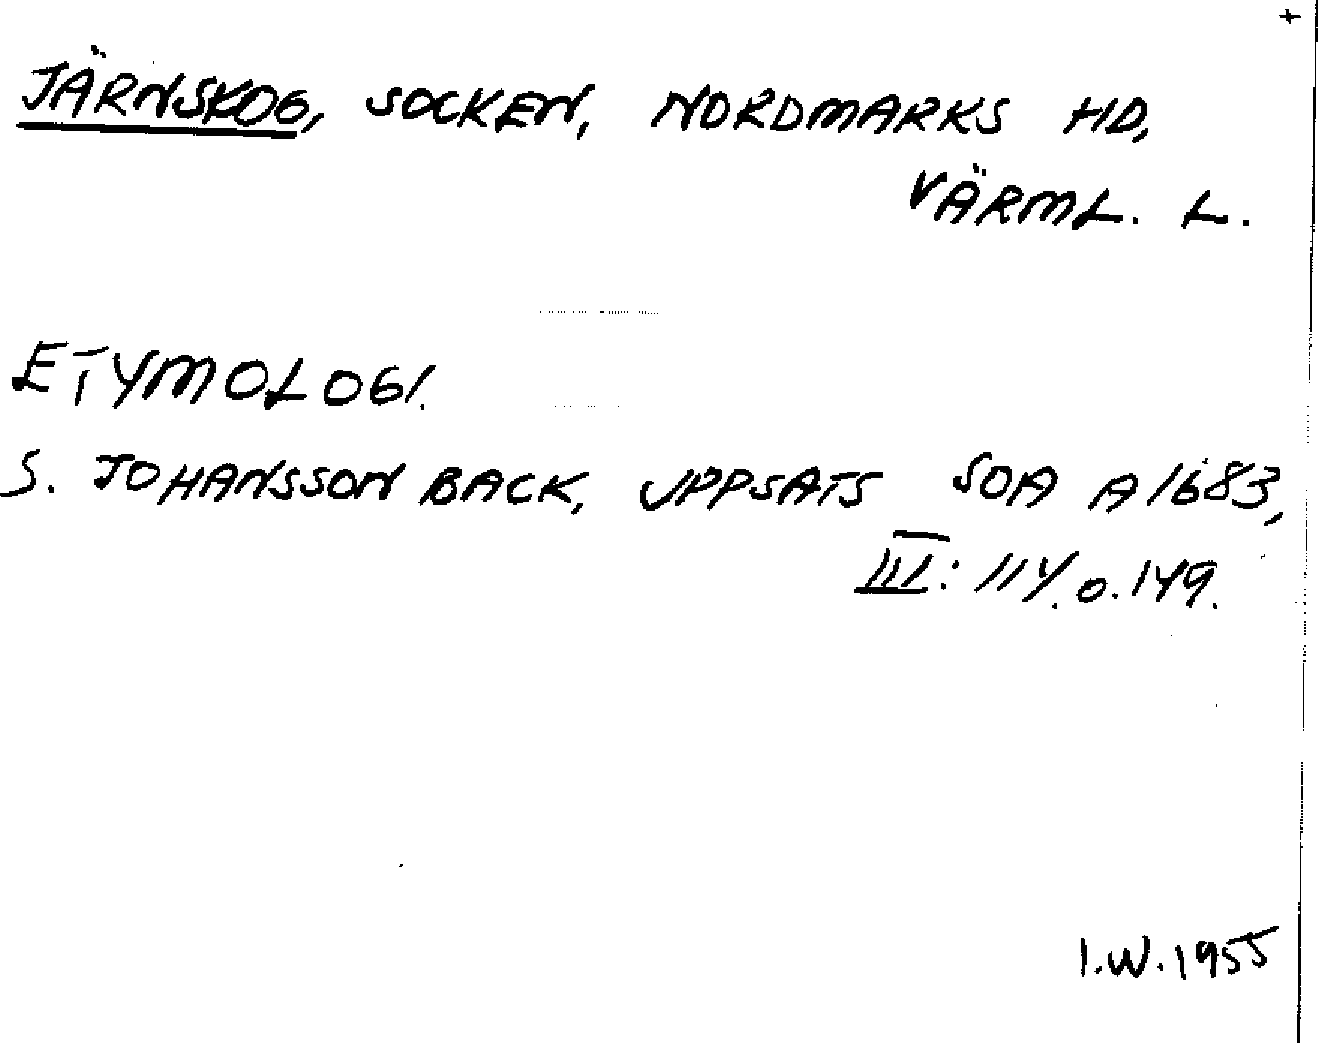 +
JÄRNSKOG, SOCKEN, NORDMARKS HD,
VÄRML. L.
ETYMOLOGI.
S. JOHANSSON BACK, UPPSATS SOA A1683,
III: 114. o. 149.
I.W. 1955